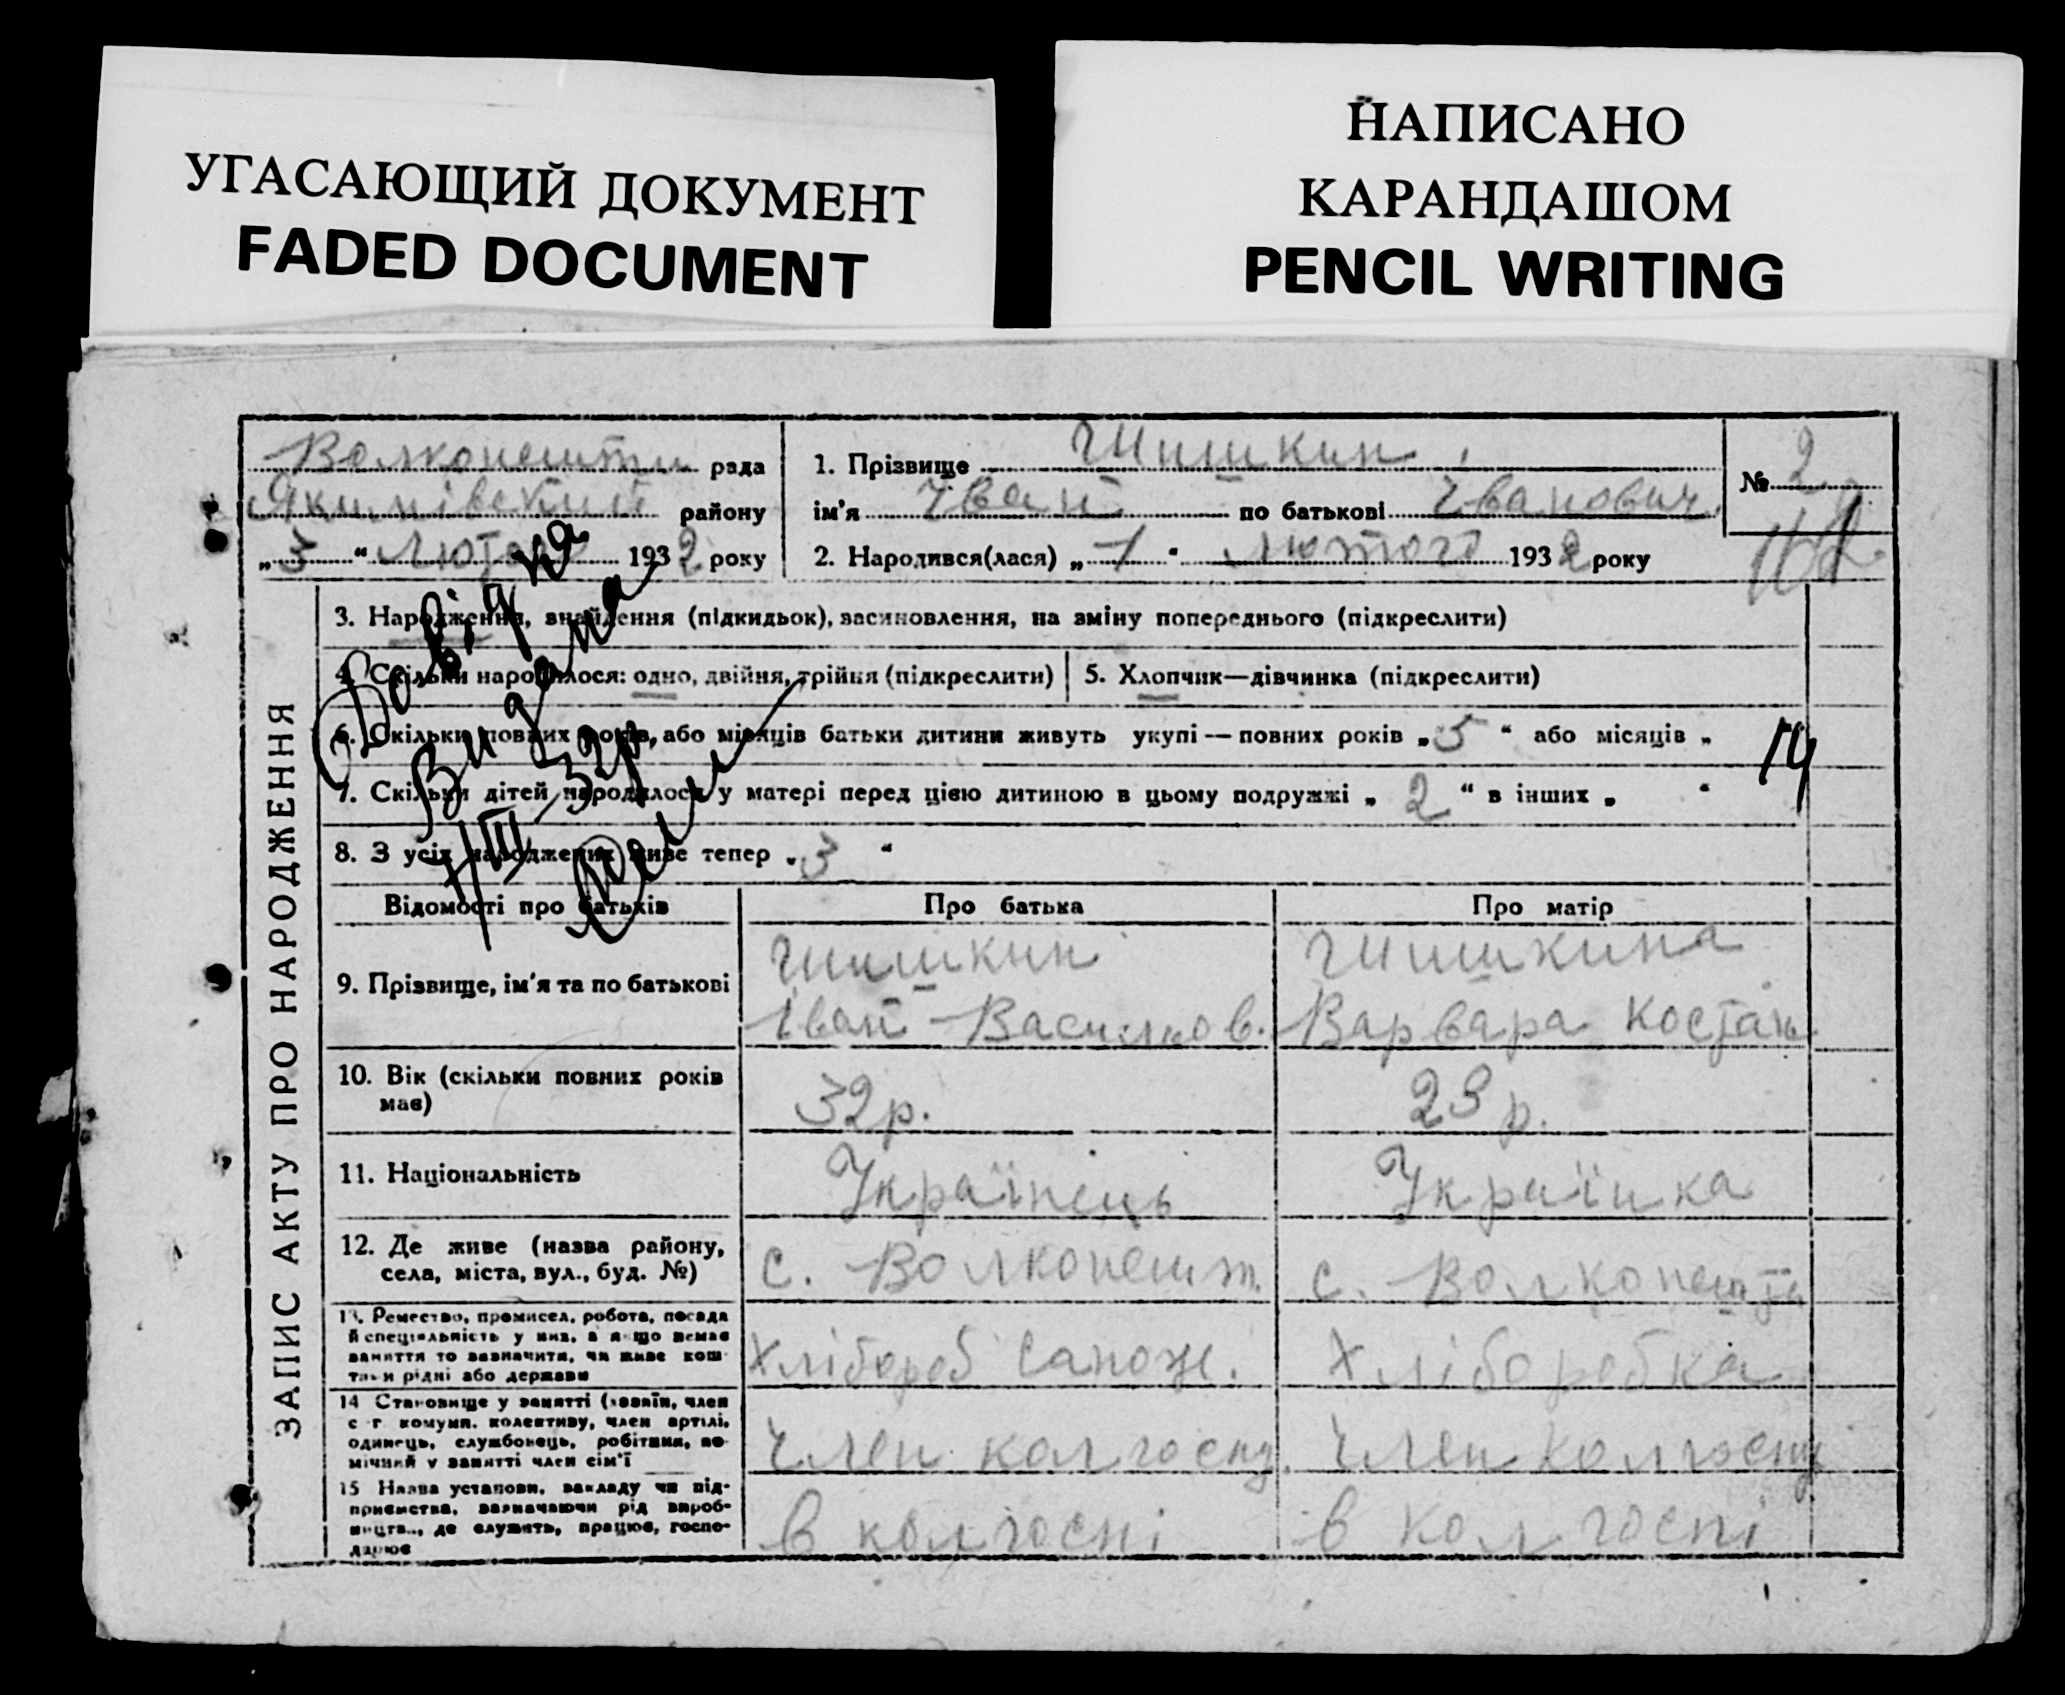 УГАСАЮЩИЙ ДОКУМЕНТ
FADED DOCUMENT
НАПИСАНО
КАРАНДАШОМ
PENCIL WRITING
Волконешти рада
Якимівский району
„3“ Лютого 1932 року
1. Прізвище Шишкин
ім'я Іван по батькові Іванович
2. Народився(лася) „1“ Лютого 1932 року
№ 2
ЗАПИС АКТУ ПРО НАРОДЖЕННЯ
3. Народження, знайдення (підкидьок), засиновлення, на зміну попереднього (підкреслити)
4. Скільки народилося: одно, двійня, трійня (підкреслити)
5. Хлопчик—дівчинка (підкреслити)
6. Скільки повних років, або місяців батьки дитини живуть укупі — повних років „5“ або місяців „
14
7. Скільки дітей народилося у матері перед цією дитиною в цьому подружжі „2“ в інших „ “
8. З усіх народжених живе тепер „3“
Довідка
Видана
7/III 32р
Відомості про батьків
Про батька
Про матір
9. Прізвище, ім'я та по батькові
Шишкин
Іван Васильов.
Шишкина
Варвара Костан
10. Вік (скільки повних років
має)
32р.
23 р.
11. Національність
Українець
Українка
12. Де живе (назва району,
села, міста, вул., буд. №)
с. Волконешт.
с. Волконешти
13. Ремество, промисел, робота, посада
й спеціяльність у них, а якщо немає
заняття то зазначити, чи живе кош-
тами рідні або держави
Хлібороб
Хліборобка
14 Становище у занятті (хазяїн, член
с-г комун. колективу, член артілі,
одинець, службовець, робітник, по-
мічний у занятті член сім'ї
Член колгоспу.
Член колгоспу
15 Назва установи, закладу чи під-
приємства, зазначаючи рід вироб-
ництв., де служить, працює, госпо-
дарює
в колгоспі
в колгоспі